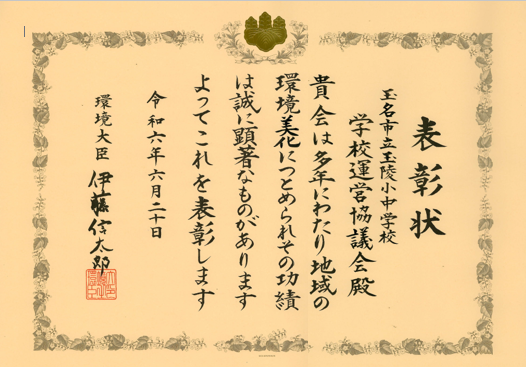 表彰状
玉名市立玉陵小中学校
学校運営協議会殿
貴会は多年にわたり地域の
環境美化につとめられその功績
は誠に顕著なものがあります
よってこれを表彰します
令和六年六月二十日
環境大臣 伊藤信太郎